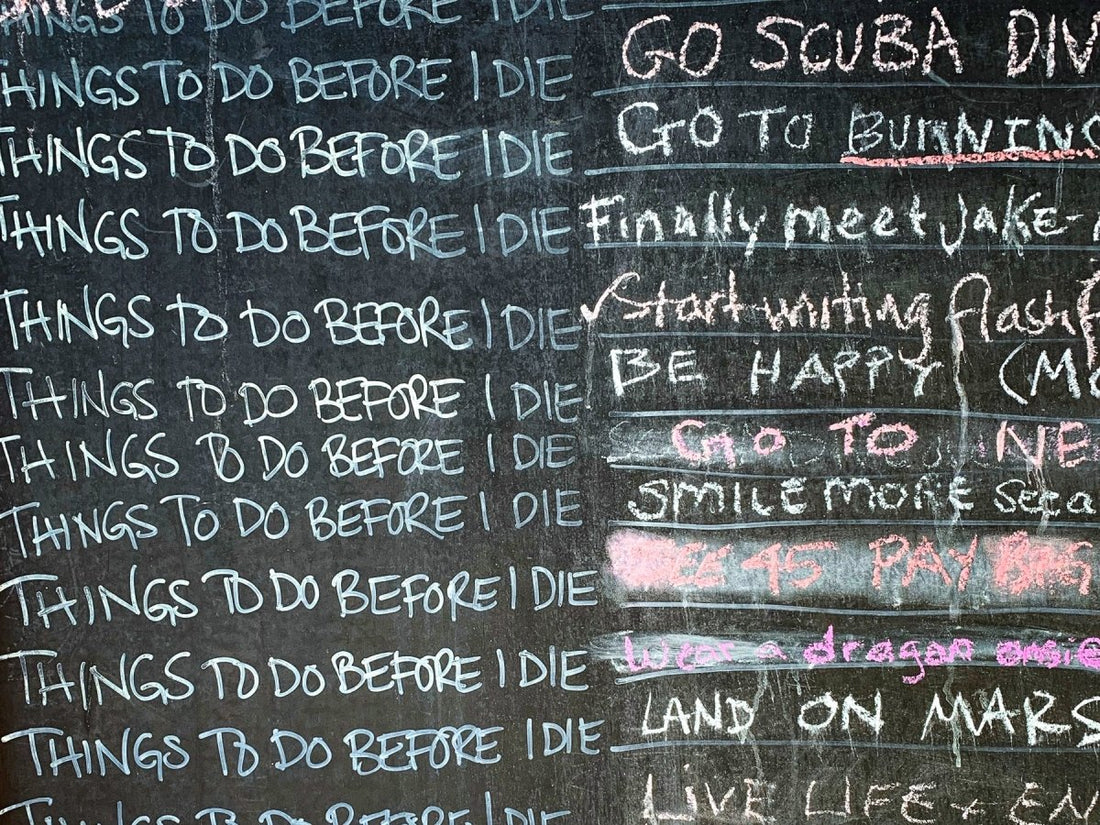 THINGS TO DO BEFORE I DIE
THINGS TO DO BEFORE I DIE GO SCUBA DIV
THINGS TO DO BEFORE I DIE GO TO BURNING
THINGS TO DO BEFORE I DIE Finally meet Jake-
THINGS TO DO BEFORE I DIE ✓Start writing flash
THINGS TO DO BEFORE I DIE BE HAPPY (MO
THINGS TO DO BEFORE I DIE GO TO NE
THINGS TO DO BEFORE I DIE SMILE MORE
THINGS TO DO BEFORE I DIE 45 PAY
THINGS TO DO BEFORE I DIE Wear a dragon onsie
THINGS TO DO BEFORE I DIE LAND ON MARS
THINGS TO DO BEFORE I DIE LIVE LIFE + EN